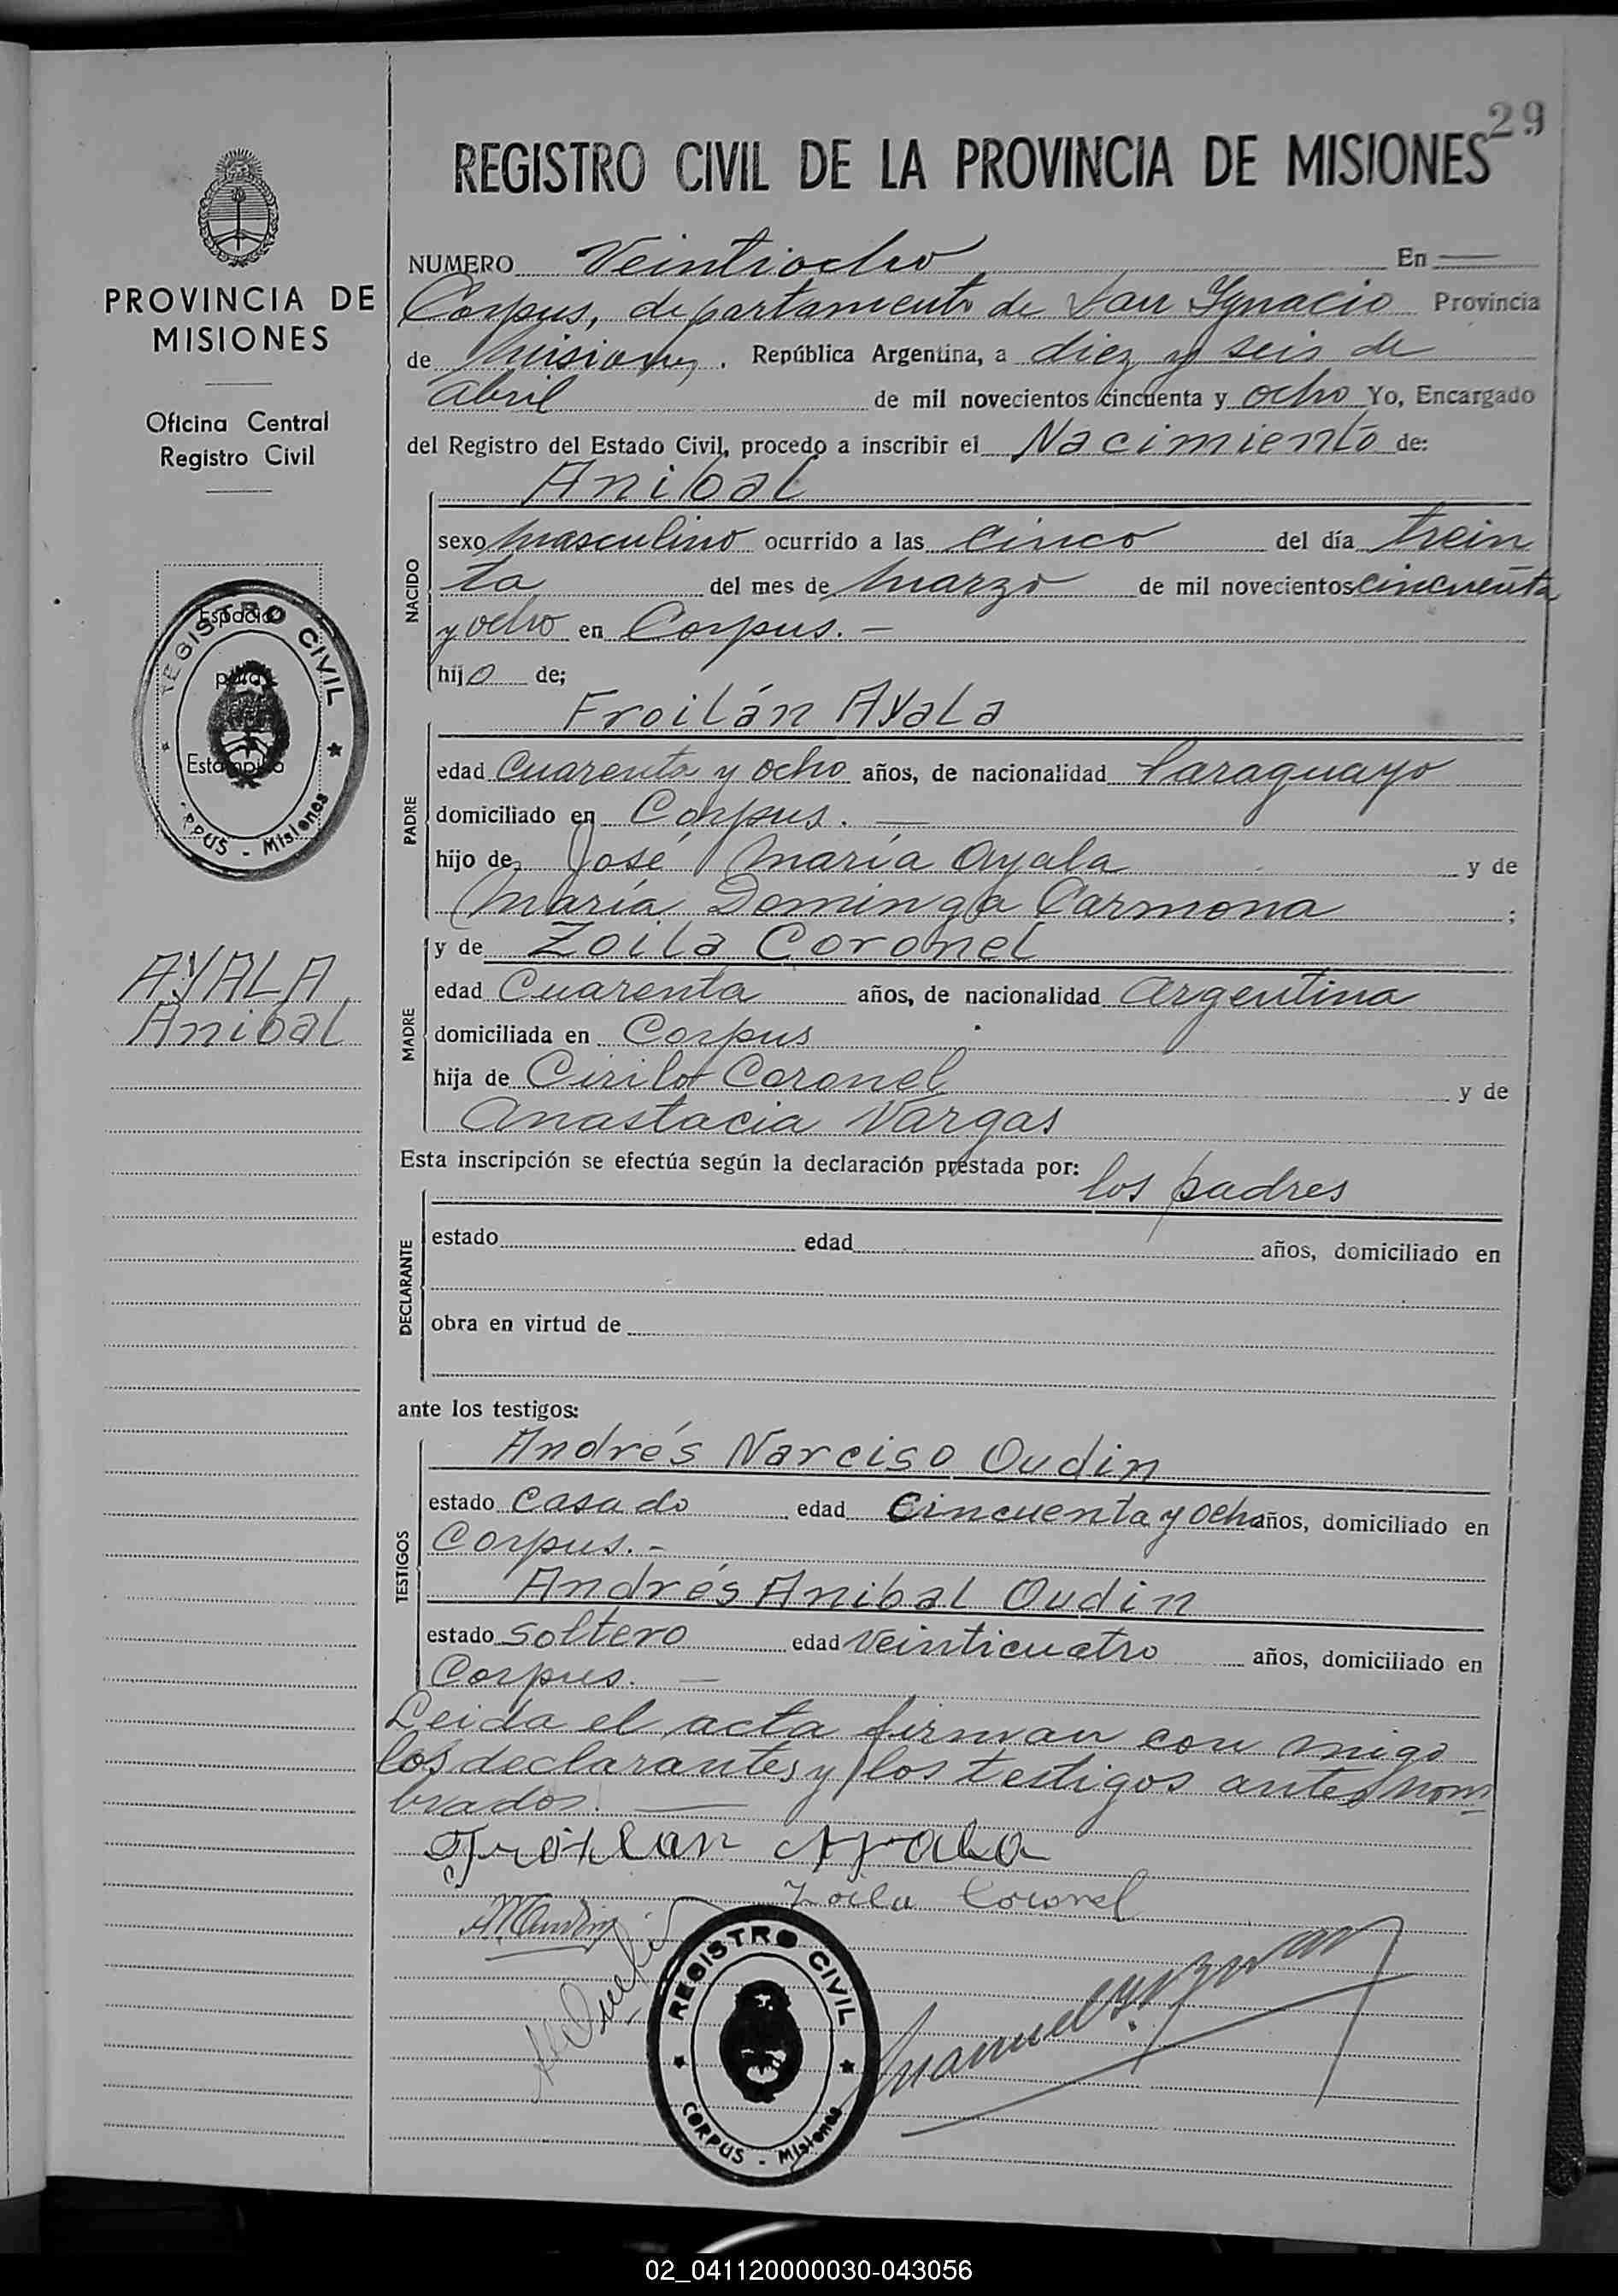 29
REGISTRO CIVIL DE LA PROVINCIA DE MISIONES
PROVINCIA DE
MISIONES
Oficina Central
Registro Civil
Espacio
para
Estampilla
REGISTRO CIVIL
CORPUS - Misiones
AYALA
Anibal
NUMERO Veintiocho En
Corpus, departamento de San Ygnacio Provincia
de Misiones. República Argentina, a diez y seis de
abril de mil novecientos cincuenta y ocho Yo, Encargado
del Registro del Estado Civil, procedo a inscribir el Nacimiento de:
Anibal
NACIDO
sexo masculino ocurrido a las cinco del día trein
ta del mes de marzo de mil novecientos cincuenta
y ocho en Corpus.-
hijo de;
Froilán Ayala
PADRE
edad cuarenta y ocho años, de nacionalidad Paraguayo
domiciliado en Corpus. —
hijo de José María Ayala y de
María Dominga Carmona ;
y de Zoila Coronel
MADRE
edad Cuarenta años, de nacionalidad argentina
domiciliada en Corpus
hija de Cirilo Coronel y de
Anastacia Vargas
Esta inscripción se efectúa según la declaración prestada por:
los padres
DECLARANTE
estado edad años, domiciliado en
obra en virtud de
ante los testigos:
Andrés Narciso Oudin
TESTIGOS
estado casado edad cincuenta y ocho años, domiciliado en
Corpus.-
Andrés Anibal Oudin
estado soltero edad veinticuatro años, domiciliado en
Corpus. —
Leida el acta firman con migo
los declarantes y los testigos antes nom
brados. —
Froilan Ayala
Zoila Coronel
REGISTRO CIVIL
CORPUS - Misiones
Manuel
02_041120000030-043056